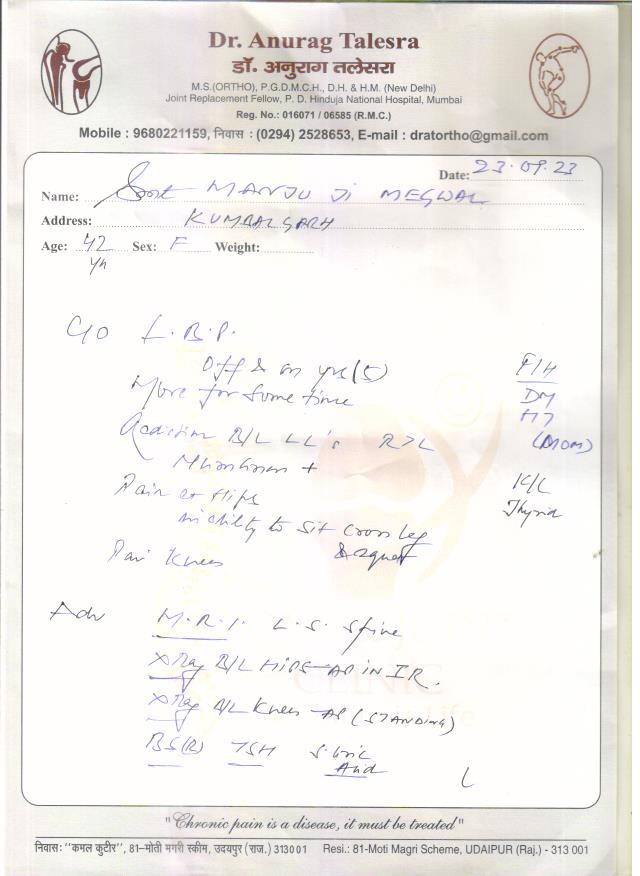 Dr. Anurag Talesra
डॉ. अनुराग तलेसरा
M.S.(ORTHO), P.G.D.M.C.H., D.H. & H.M. (New Delhi)
Joint Replacement Fellow, P. D. Hinduja National Hospital, Mumbai
Reg. No.: 016071 / 06585 (R.M.C.)
Mobile : 9680221159, निवास : (0294) 2528653, E-mail : dratortho@gmail.com
Date: 23.09.23
Name: Smt MANJU Ji MEGWAL
Address: KUMBALGARH
Age: 42 Sex: F Weight:
C/O L.B.P.
Off & on yrs (5) F/H
More for some time DM
HT
B/L LL's R>L (MOM)
+ K/C
Pain at Hips Thyroid
inability to sit cross leg
& squat
Pain Knees
Adv M.R.I. L.S. Spine
X Ray B/L HIPS AP IN IR.
X Ray B/L Knees AP (STANDING)
BS(R) TSH S. Uric
Acid
CLINIC
Life
"Chronic pain is a disease, it must be treated"
निवास: "कमल कुटीर", 81-मोती मगरी स्कीम, उदयपुर (राज.) 313001 Resi.: 81-Moti Magri Scheme, UDAIPUR (Raj.) - 313 001